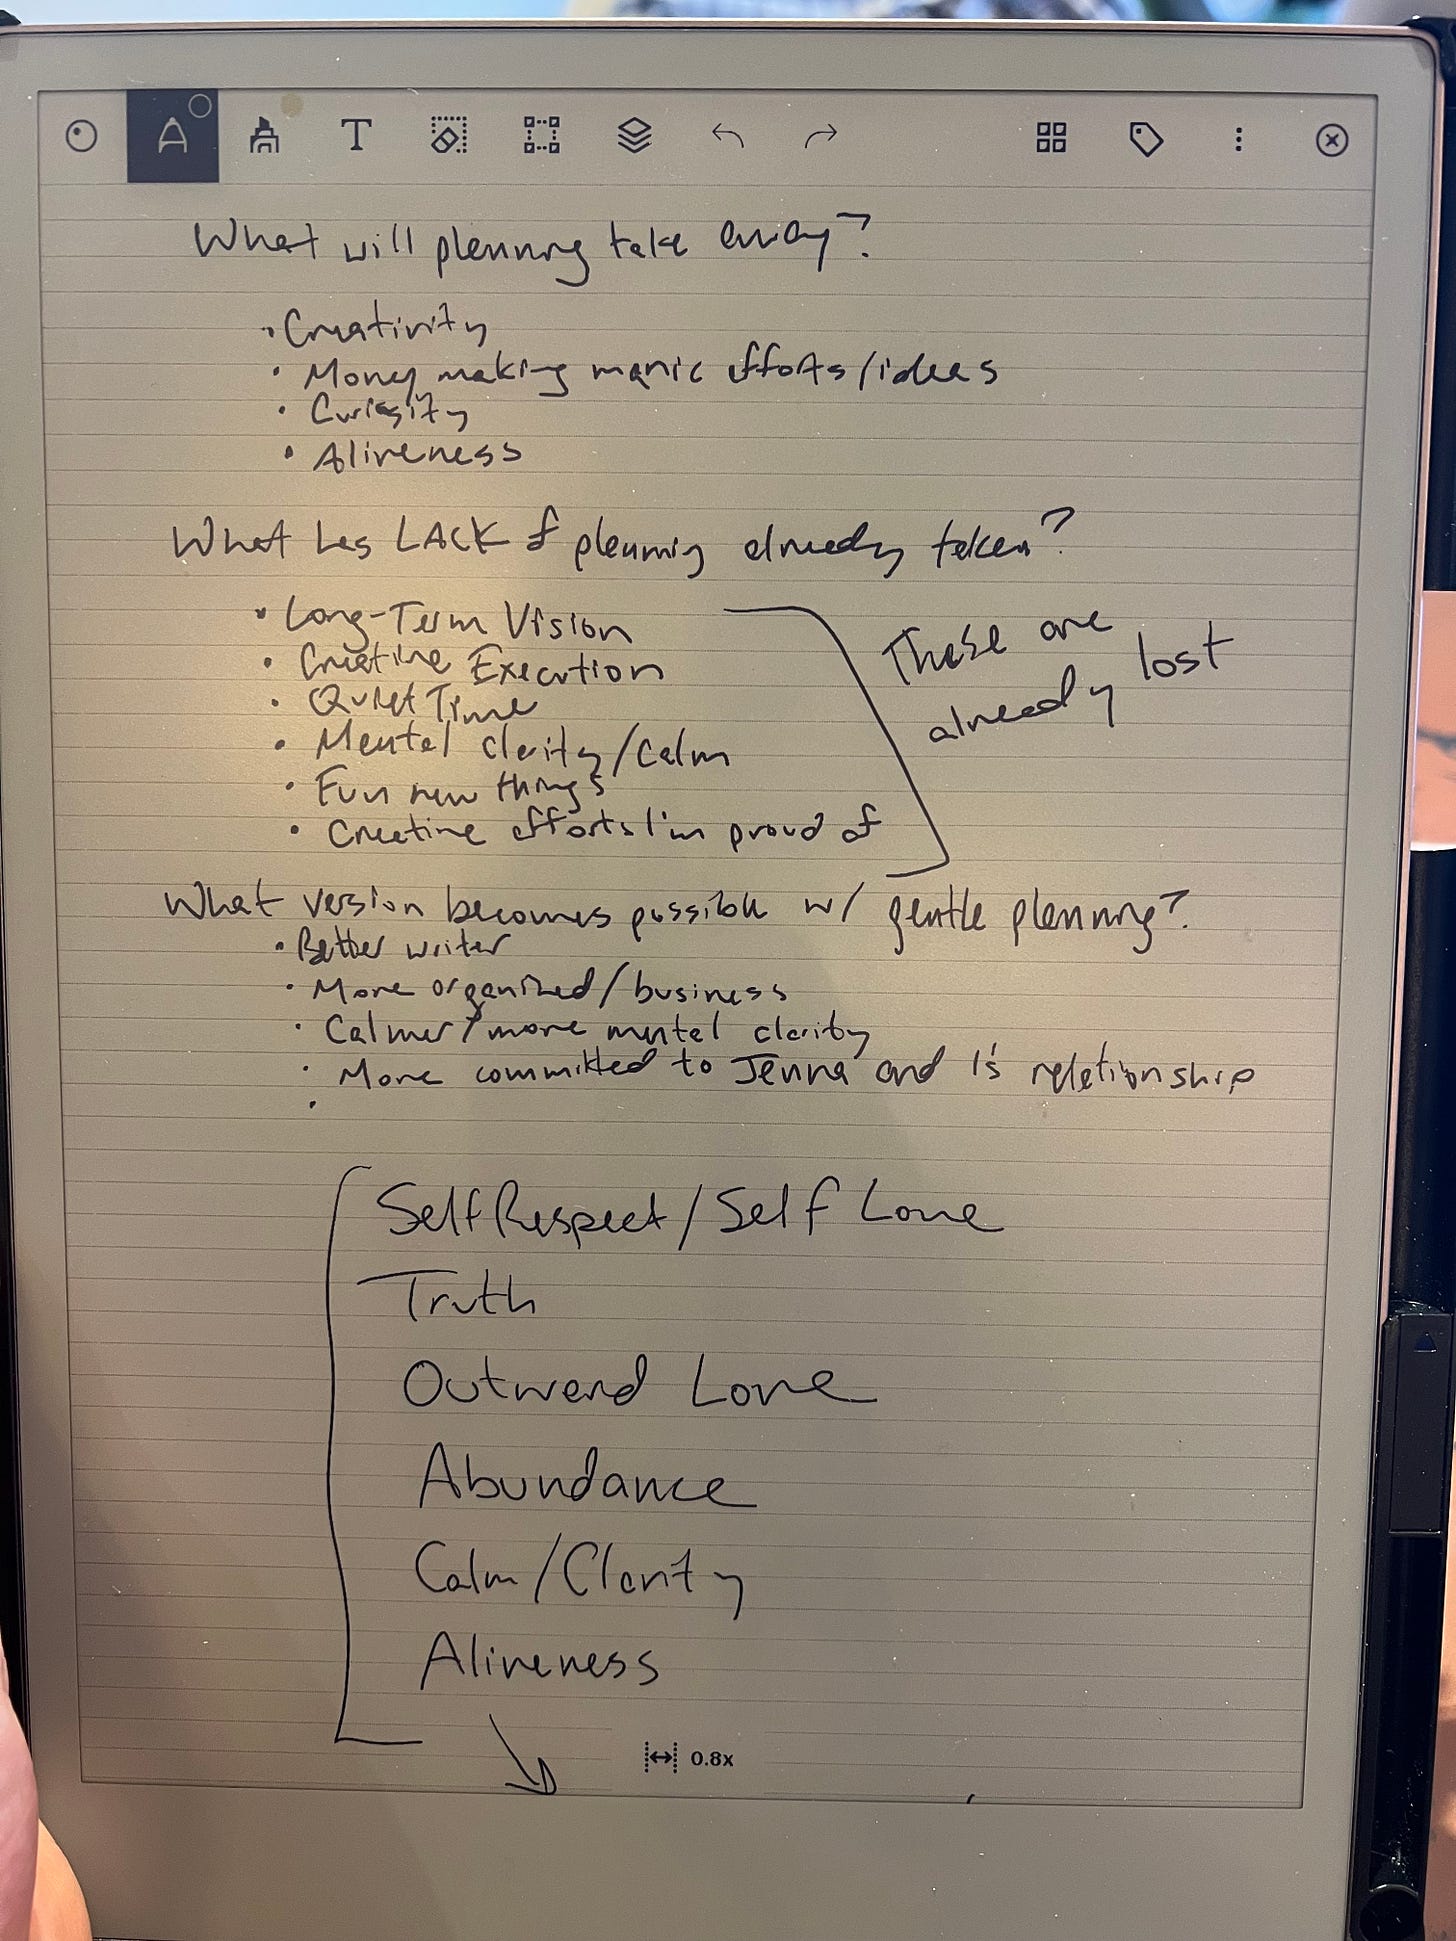 T
What will planning take away?
• Creativity
• Money making manic efforts/ideas
• Curiosity
• Aliveness
What has LACK of planning already taken?
• Long-Term Vision
• Creative Execution
• Quiet Time
• Mental clarity/calm
• Fun new things
• Creative efforts I'm proud of
These are
already lost
What version becomes possible w/ gentle planning?
• Better writer
• More organized/business
• Calmer/more mental clarity
• More committed to Jenna and I's relationship
•
Self Respect/Self Love
Truth
Outward Love
Abundance
Calm/Clarity
Aliveness
0.8x